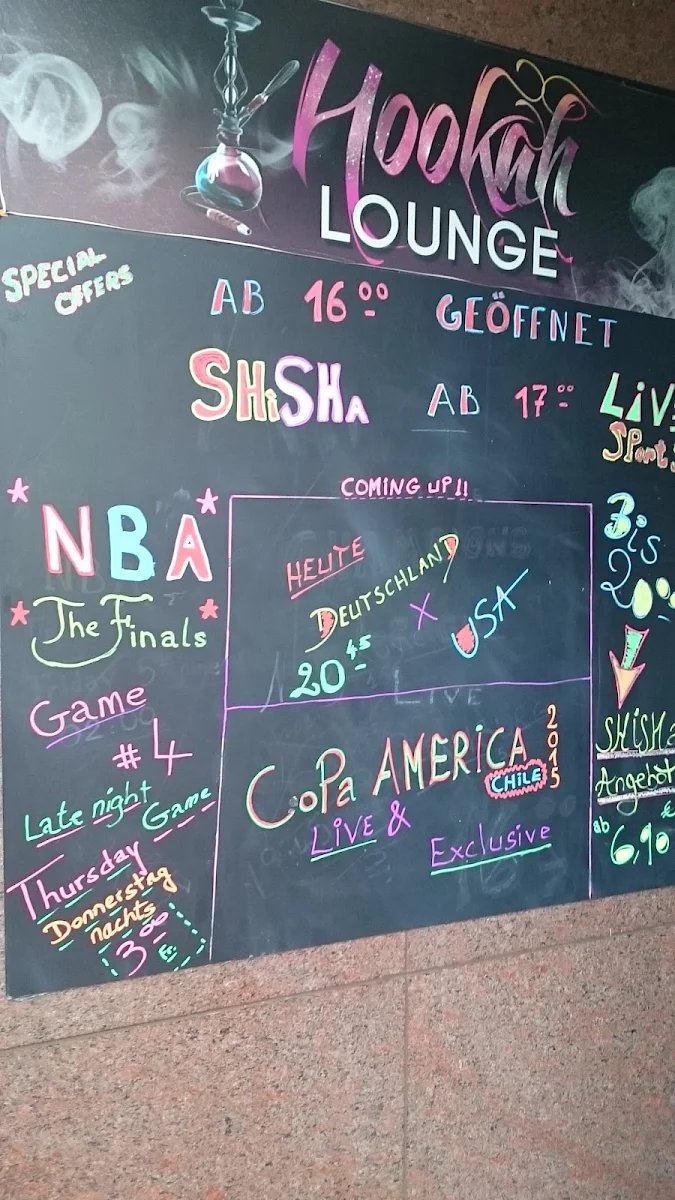 Hookah
LOUNGE
SPECIAL
OFFERS
AB 16 00 GEÖFFNET
SHiSHA AB 17 00
LiV
Sport
NBA
The Finals
Game
#4
Late night
Game
Thursday
Donnerstag
nachts
3 00
Fr.
COMING UP!!
HEUTE
DEUTSCHLAND
X
USA
20 45
LIVE
CoPa AMERiCA 2015
CHiLE
LiVE &
Exclusive
Bis
20
SHiSHa
Angebot
ab
6,90
€